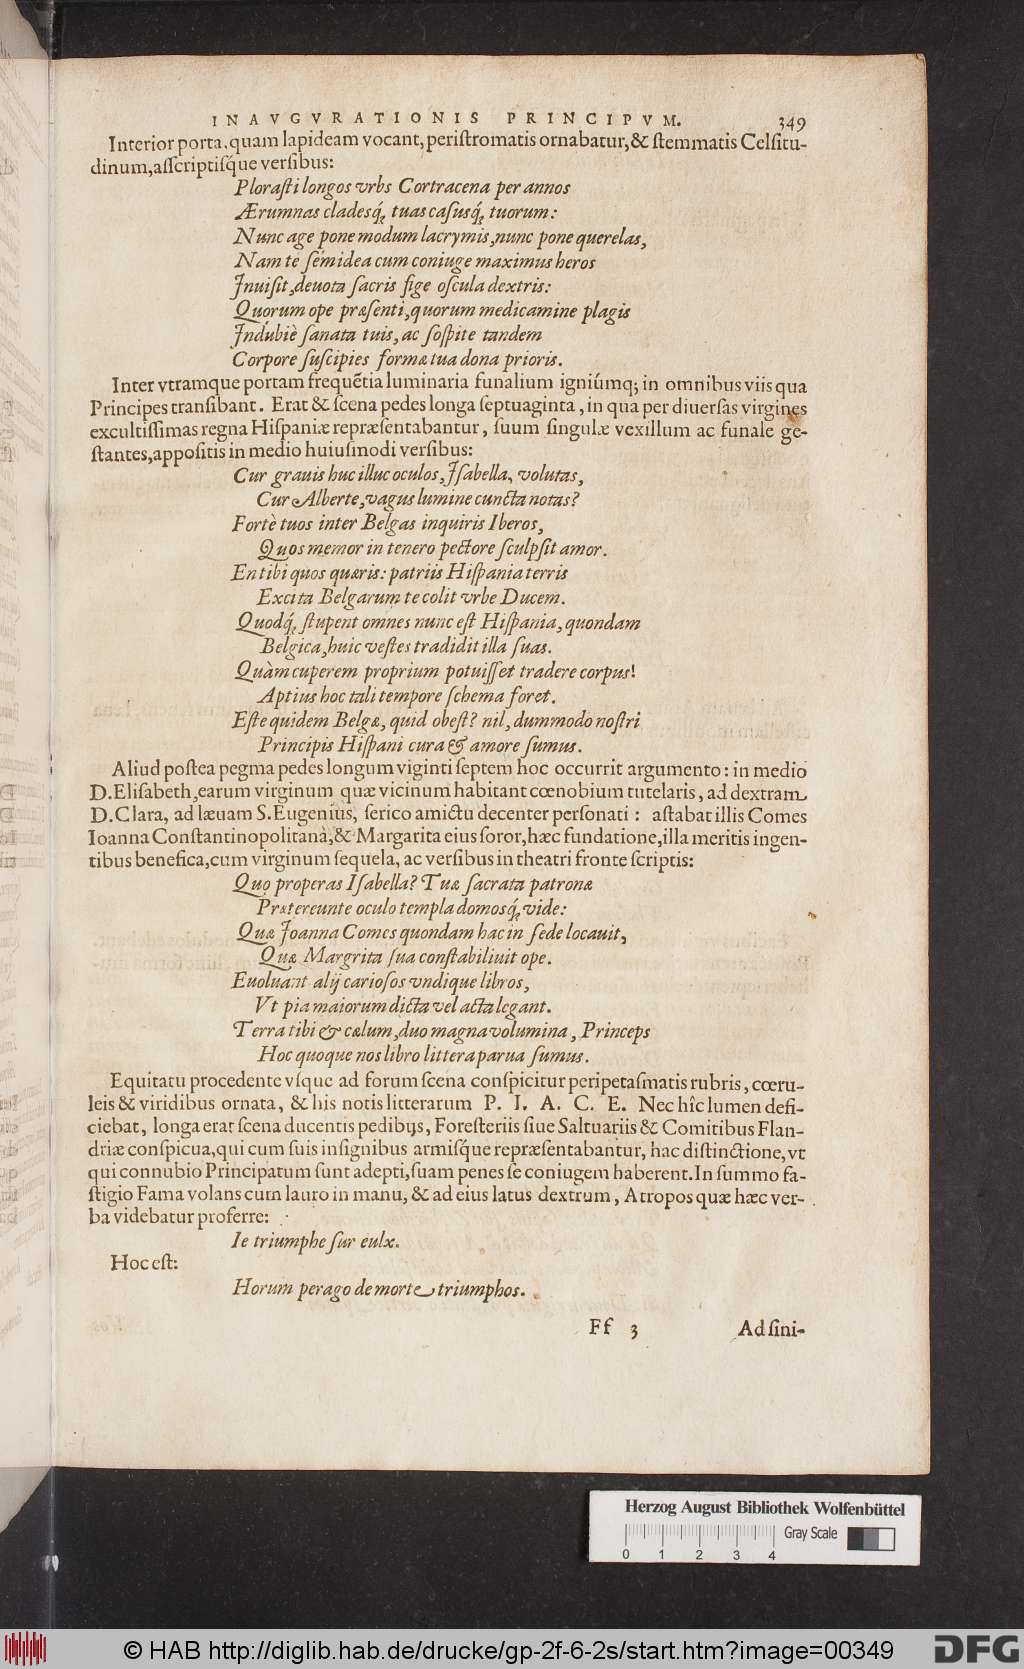 INAVGVRATIONIS PRINCIPVM. 349
Interior porta, quam lapideam vocant, peristromatis ornabatur, & stemmatis Celsitu-
dinum, asscriptisq́ue versibus:
Plorasti longos vrbs Cortracena per annos
Ærumnas cladesq́; tuas casusq́; tuorum:
Nunc age pone modum lacrymis, nunc pone querelas,
Nam te semidea cum coniuge maximus heros
Inuisit, deuota sacris fige oscula dextris:
Quorum ope præsenti, quorum medicamine plagis
Indubiè sanata tuis, ac sospite tandem
Corpore suscipies formæ tua dona prioris.
Inter vtramque portam frequẽtia luminaria funalium igniúmq; in omnibus viis qua
Principes transibant. Erat & scena pedes longa septuaginta, in qua per diuersas virgines
excultissimas regna Hispaniæ repræsentabantur, suum singulæ vexillum ac funale ge-
stantes, appositis in medio huiusmodi versibus:
Cur grauis huc illuc oculos, Isabella, volutas,
Cur Alberte, vagus lumine cuncta notas?
Fortè tuos inter Belgas inquiris Iberos,
Quos memor in tenero pectore sculpsit amor.
En tibi quos quæris: patriis Hispania terris
Excita Belgarum te colit vrbe Ducem.
Quodq́; stupent omnes nunc est Hispania, quondam
Belgica, huic vestes tradidit illa suas.
Quàm cuperem proprium potuisset tradere corpus!
Aptius hoc tali tempore schema foret.
Este quidem Belgæ, quid obest? nil, dummodo nostri
Principis Hispani cura & amore sumus.
Aliud postea pegma pedes longum viginti septem hoc occurrit argumento: in medio
D. Elisabeth, earum virginum quæ vicinum habitant cœnobium tutelaris, ad dextram
D. Clara, ad læuam S. Eugenius, serico amictu decenter personati: astabat illis Comes
Ioanna Constantinopolitana, & Margarita eius soror, hæc fundatione, illa meritis ingen-
tibus benefica, cum virginum sequela, ac versibus in theatri fronte scriptis:
Quo properas Isabella? Tuæ sacrata patronæ
Prætereunte oculo templa domosq́; vide:
Quæ Ioanna Comes quondam hac in sede locauit,
Quæ Margrita sua constabiliuit ope.
Euoluant alij cariosos vndique libros,
Vt pia maiorum dicta vel acta legant.
Terra tibi & cælum, duo magna volumina, Princeps
Hoc quoque nos libro littera parua sumus.
Equitatu procedente vsque ad forum scena conspicitur peripetasmatis rubris, cœru-
leis & viridibus ornata, & his notis litterarum P. I. A. C. E. Nec hîc lumen defi-
ciebat, longa erat scena ducentis pedibus, Foresteriis siue Saltuariis & Comitibus Flan-
driæ conspicua, qui cum suis insignibus armisq́ue repræsentabantur, hac distinctione, vt
qui connubio Principatum sunt adepti, suam penes se coniugem haberent. In summo fa-
stigio Fama volans cum lauro in manu, & ad eius latus dextrum, Atropos quæ hæc ver-
ba videbatur proferre:
Ie triumphe sur eulx.
Hoc est:
Horum perago de morte triumphos.
Ff 3 Ad sini-
Herzog August Bibliothek Wolfenbüttel
Gray Scale
0 1 2 3 4
© HAB http://diglib.hab.de/drucke/gp-2f-6-2s/start.htm?image=00349
DFG